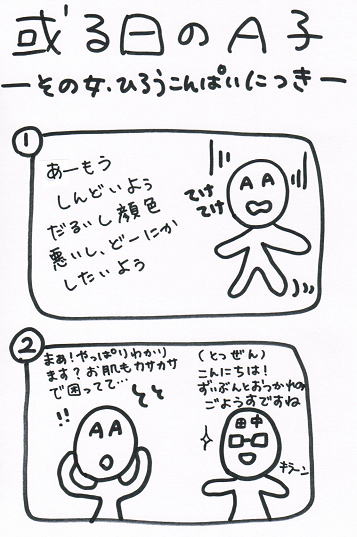 或る日のA子
ーその女、ひろうこんぱいにつきー
1
あーもう
しんどいよぅ
だるいし顔色
悪いし、どーにか
したいよう
てけ
てけ
A A
2
まぁ!やっぱりわかり
ます?お肌もカサカサ
で困ってて…
!!
A A
(とつぜん)
こんにちは!
ずいぶんとおつかれの
ごようすですね
田中
キラーン